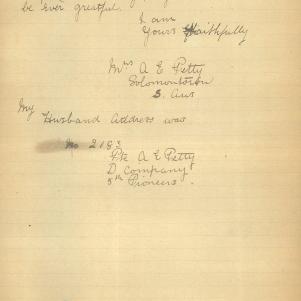 be ever grateful.
I am
Yours Faithfully
Mrs A E Petty
Solomontown
S. Aus
My
Husband Address was
No 2183
Pte A E Petty
D Company
5th Pioneers.